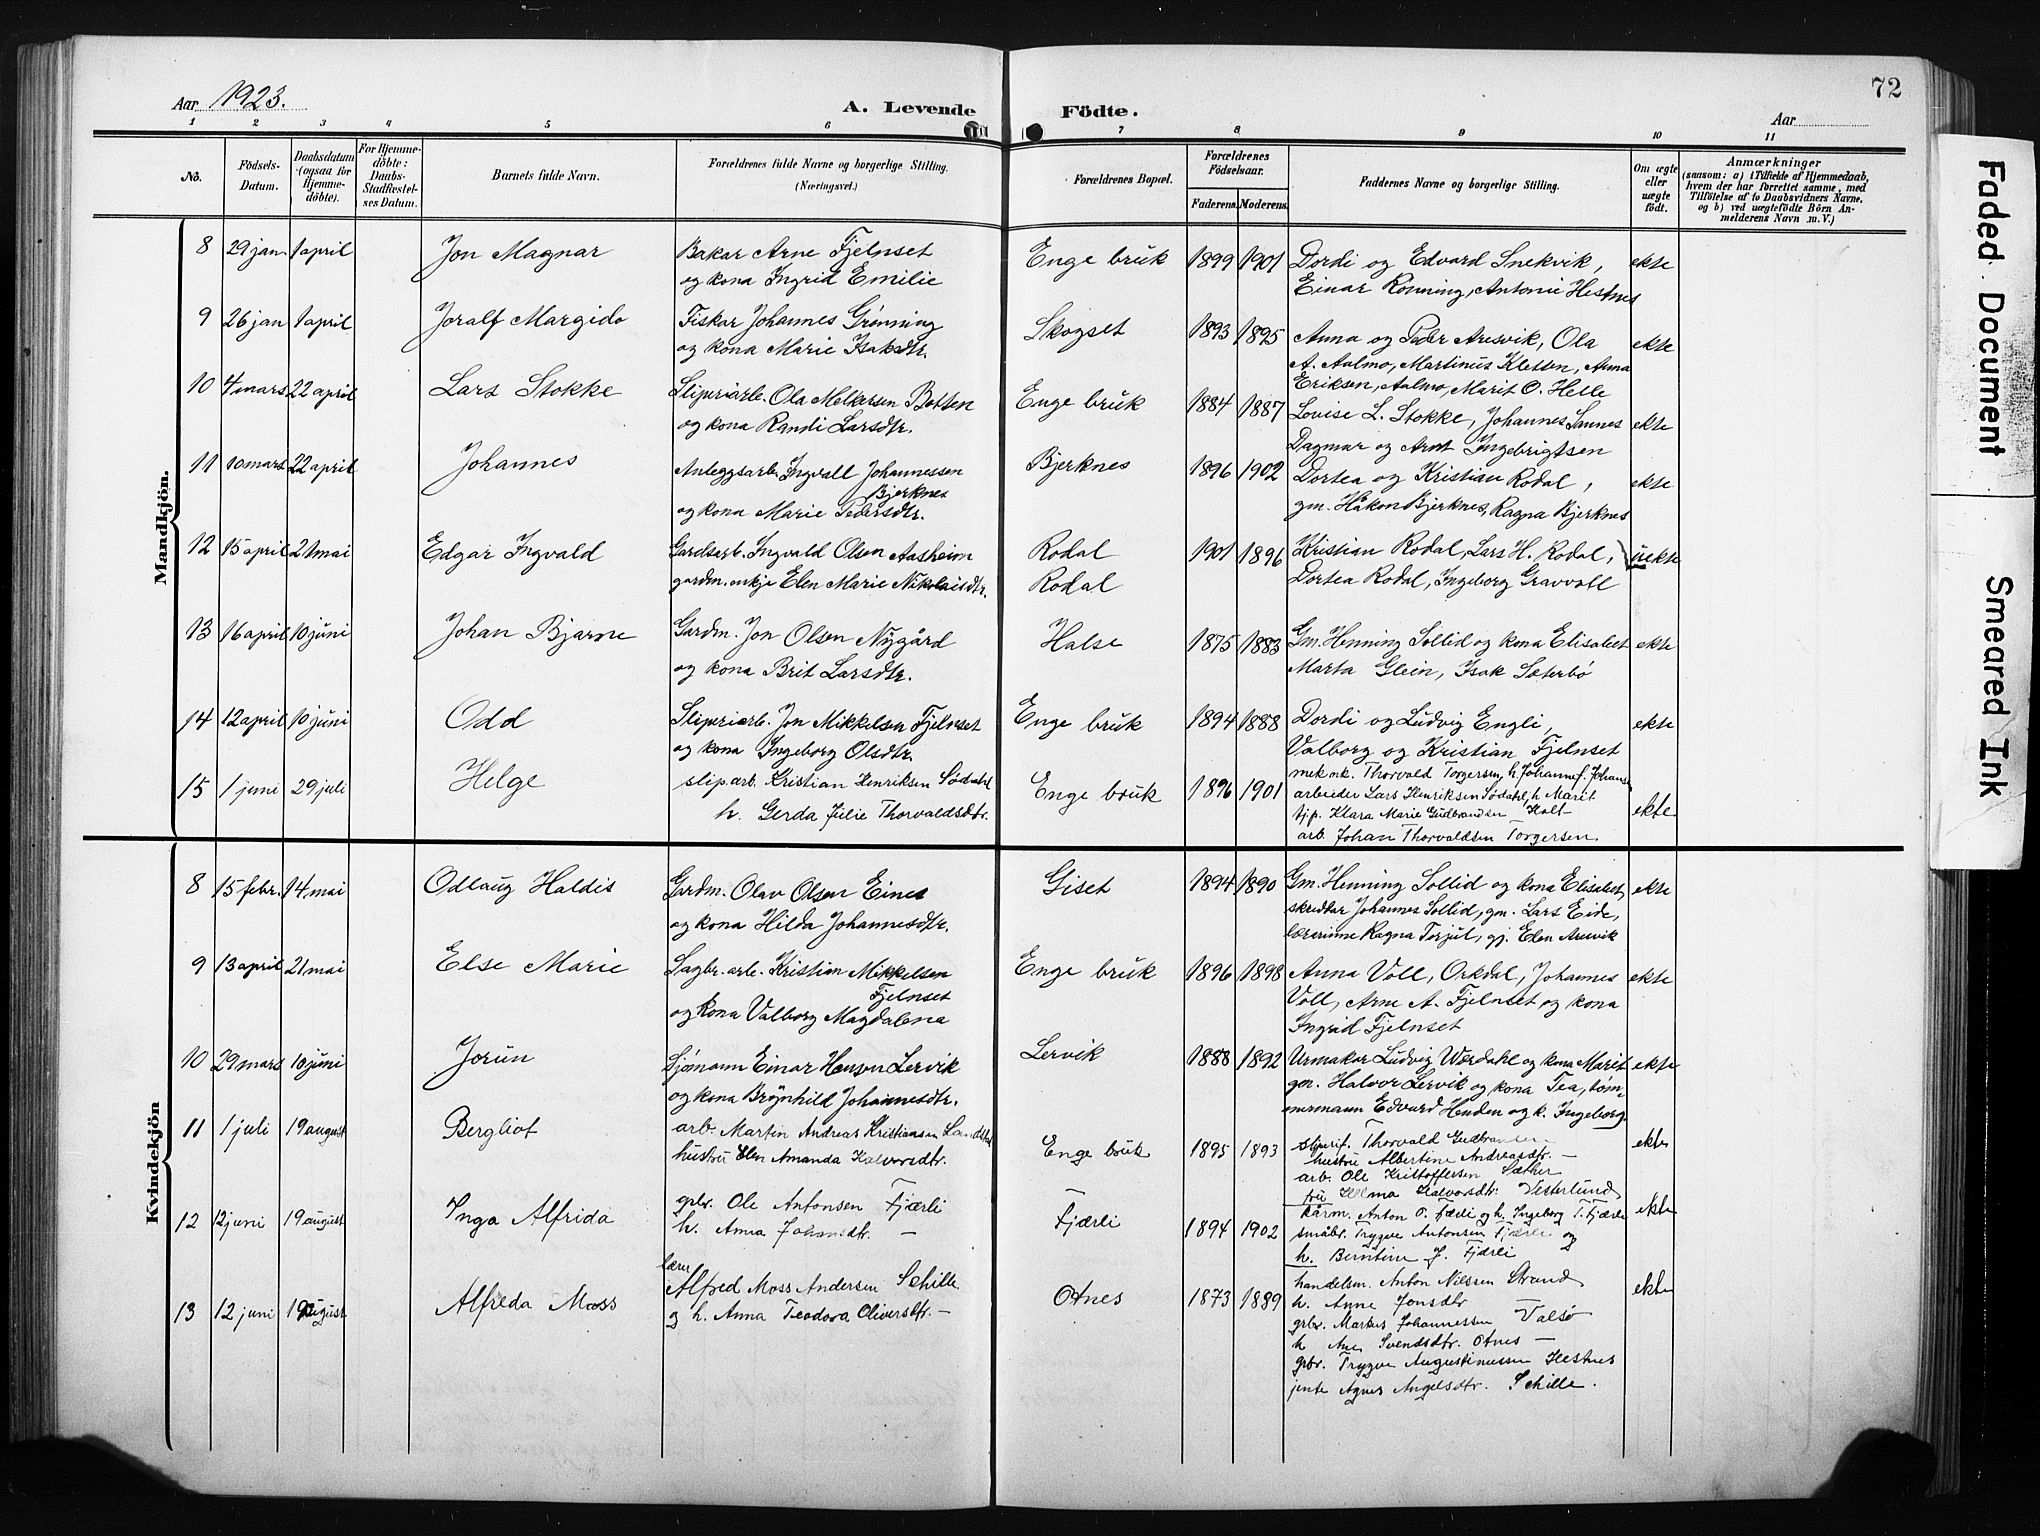 72
Aar 1923.
A. Levende Födte.
Aar
1 2 3 4 5 6 7 8 9 10 11
No.
Födsels-Datum.
Daabsdatum (ogsaa for Hjemmedöbte).
For Hjemmedöbte: Daabs-Stadfæstelses Datum.
Barnets fulde Navn.
Forældrenes fulde Navne og borgerlige Stilling. (Næringsvei.)
Forældrenes Bopæl.
Forældrenes Födselsaar.
Faderens. Moderens.
Faddernes Navne og borgerlige Stilling.
Om ægte eller uægte födt.
Anmærkninger
(saasom: a) i Tilfælde af Hjemmedaab, hvem der har forrettet samme, med Tilföielse af to Daabsvidners Navne, og b) ved uægtefödte Börn Anmelderens Navn m. V.)
Mandkjön.
8 29 jan 1 april Jon Magnar Bakar Arne Fjelnset Enge bruk 1899 1901 Dordi og Edvard Snekvik, ekte
og kona Ingrid Emilie Einar Rønning, Antonie Hestnes
9 26 jan 1 april Joralf Margido Fiskar Johannes Grønning Skogset 1893 1895 Anna og Peder Aresvik, Ola ekte
og kona Marie Isaksdtr. A. Aalmo, Martinus Kletten, Anna
Eriksen, Aalmo, Marit O. Helle
10 4 mars 22 april Lars Stokke Sliperiarb. Ola Melkersen Botten Enge bruk 1884 1887 Lovise L. Stokke, Johannes Sannes ekte
og kona Randi Larsdtr. Dagmar og Arnt Ingebrigtsen
11 10 mars 22 april Johannes Anleggsarb. Ingvall Johannessen Bjerknes 1896 1902 Dortea og Kristian Rodal, ekte
Bjerknes
og kona Marie Pedersdtr. gm. Håkon Bjerknes, Ragna Bjerknes
12 15 april 21 mai Edgar Ingvald Gardsarb. Ingvald Olsen Aasheim Rodal 1901 1896 Kristian Rodal, Lars H. Rodal, uekte
gardm. enkja Elen Marie Nikolaisdtr. Rodal Dortea Rodal, Ingeborg Gravvoll
13 16 april 10 juni Johan Bjarne Gardm. Jon Olsen Nygård Halse 1875 1883 Gm. Henning Sollid og kona Elisabet ekte
og kona Brit Larsdtr. Marta Glein, Isak Sæterbö
14 12 april 10 juni Odd Sliperiarb. Jon Mikkelsen Fjelnset Enge bruk 1894 1888 Dordi og Ludvig Engli, ekte
og kona Ingeborg Olsdtr. Valborg og Kristian Fjelnset
15 1 juni 29 juli Helge slip.arb. Kristian Henriksen Södahl Enge bruk 1896 1901 Thorvald Torgersen, h. Johanne J. Johansen ekte
h. Gerda Julie Thorvaldsdtr. arbeider Lars Henriksen Södahl, h. Marit
tjp. Klara Marie Gudbrandsen Holt
arb. Johan Thorvaldsen Torgersen
Kvindekjön
8 15 febr. 14 mai Odlaug Haldis Gardm. Olav Olsen Eines Giset 1894 1890 Gm. Henning Sollid og kona Elisabet, ekte
og kona Hilda Johannesdtr. skreddar Johannes Sollid, gm. Lars Eide,
lærerinne Ragna Torjul, gj. Elen Aresvik
9 13 april 21 mai Else Marie Sagbr. arb. Kristian Mikkelsen Enge bruk 1896 1898 Anna Voll, Orkdal, Johannes ekte
Fjelnset Voll, Arne A. Fjelnset og kona
og kona Valborg Magdalena Ingrid Fjelnset
10 29 mars 10 juni Jorun Sjømann Einar Hansen Lervik Lervik 1888 1892 Urmakar Ludvig Werdahl og kona Marit ekte
og kona Brynhild Johannesdtr. gm. Halvor Lervik og kona Tea, tøm-
mermann Edvard Henden og k. Ingeborg.
11 1 juli 19 august Bergliot arb. Martin Andreas Kristiansen Enge bruk 1895 1893 Thorvald Gudbrandsen ekte
hustru Elen Amanda Halvorsdtr. hustru Albertine Andreasdtr. —
arb. Ole Kristoffersen Sæther
fru Helma Halvorsdtr. Vesterlund
12 12 juni 19 august Inga Alfrida gbr. Ole Antonsen Fjærli Fjærli 1894 1902 Kårm. Anton O. Fjærli og h. Ingeborg T. Fjærli ekte
h. Anna Johansdtr. — småbr. Trygve Antonsen Fjærli og
h. Berntine J. Fjærli
13 12 juni 19 august Alfreda Moss lærer Alfred Moss Andersen Schille Otnes 1873 1889 handelsm. Anton Nilssen Strand ekte
og h. Anna Teodora Oliversdtr. — h. Anne Jonsdtr
gbr. Markus Johannessen Valsø
h Ane Svendsdtr. Otnes —
gbr. Trygve Augustinussen Hestnes
jente Agnes Angelsdtr. Schille.
Faded Document
Smeared Ink